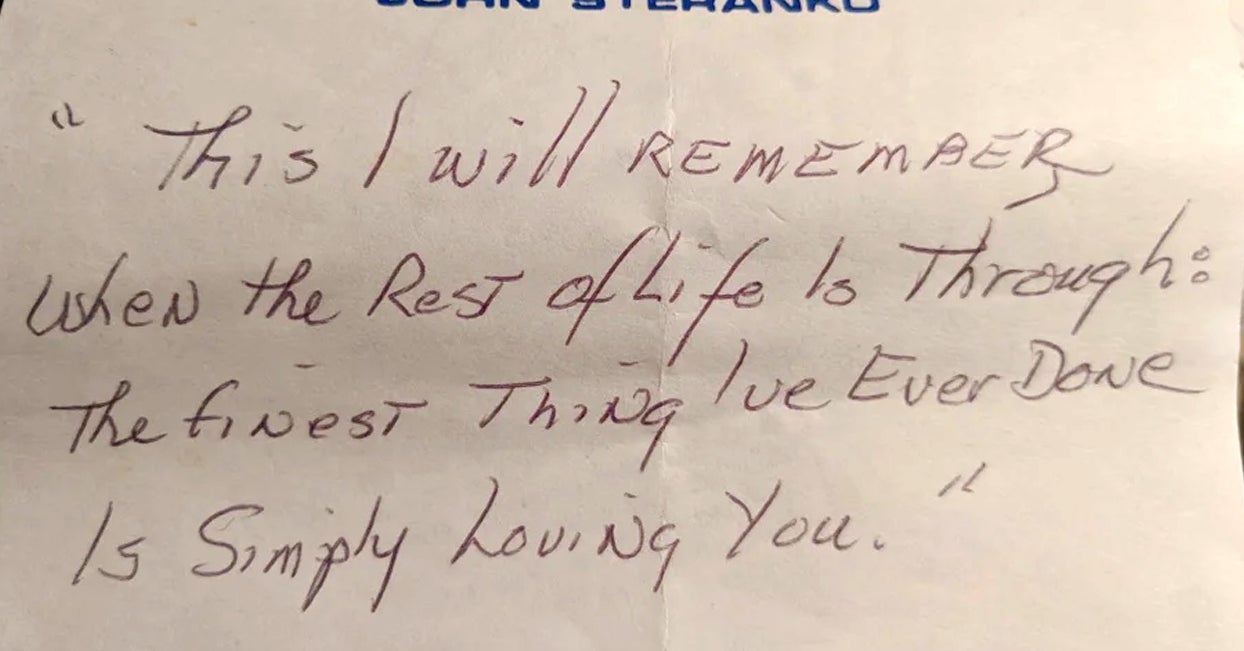 JOHN STERANKO
" This I will REMEMBER
When the Rest of Life Is Through:
The finest Thing I've Ever Done
Is Simply Loving You. "